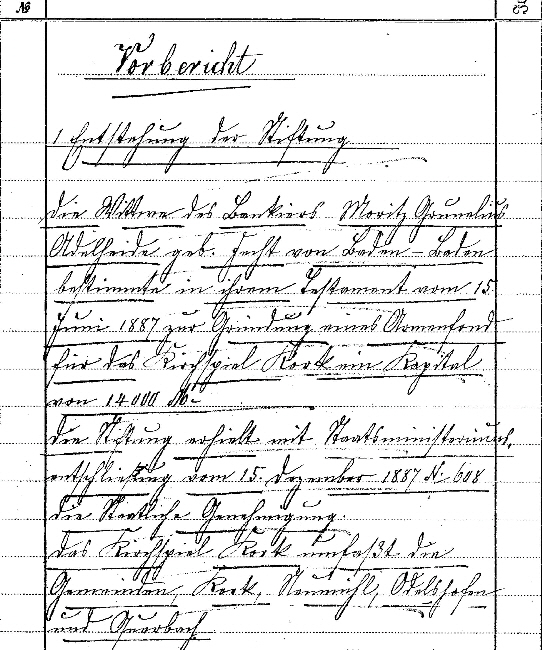 №
Vorbericht
1 Entstehung der Stiftung
Die Wittwe des Bankiers Moritz Grunelius
Adelheide geb. Hecht von Baden-Baden
bestimmte in ihrem Testament vom 15.
Juni 1887 zur Gründung eines Armenfond
für das Kirchspiel Kork ein Kapital
von 14000 M.-
Die Stiftung erhielt mit Staatsministeriums.
entschließung vom 15. Dezember 1887 № 608
die Staatliche Genehmigung.
Das Kirchspiel Kork umfaßt die
Gemeinden, Kork, Neumühl, Odelshofen
und Querbach